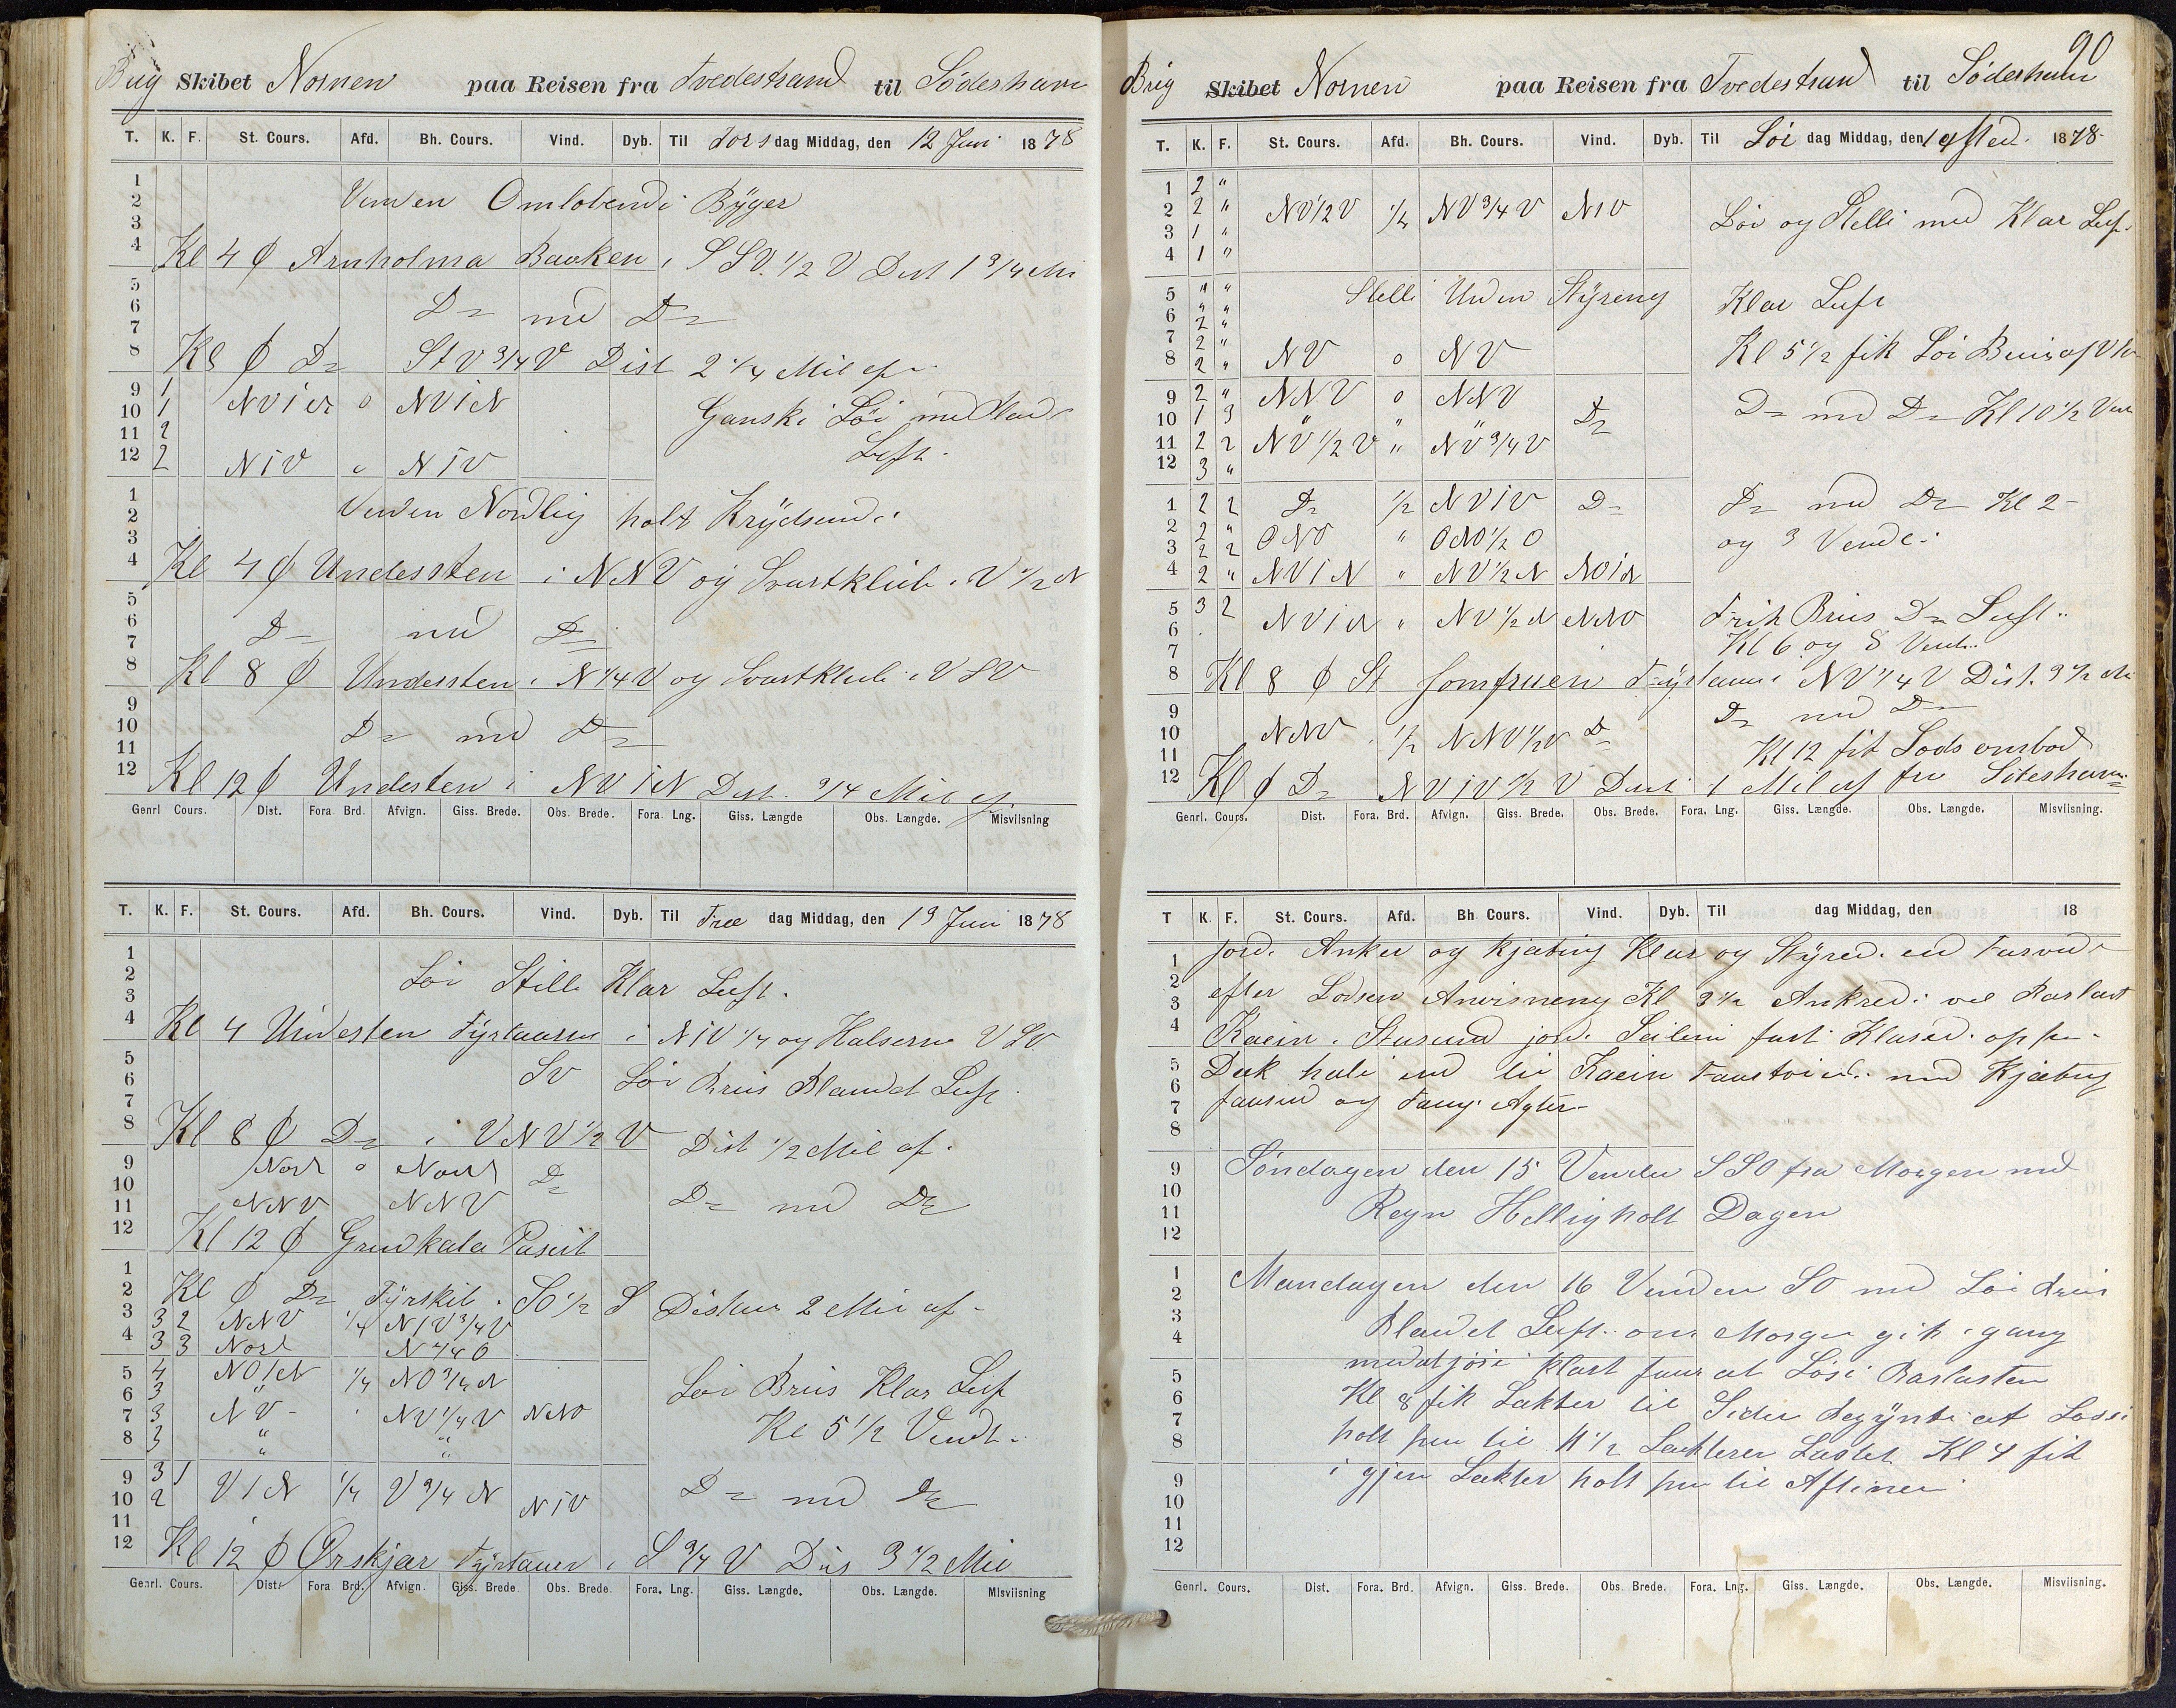 Brig Skibet Nornen paa Reisen fra Tvedestrand til Söderhamn
T. K. F. St. Cours. Afd. Bh. Cours. Vind. Dyb. Til Tors dag Middag, den 12 Juni 1878
1
2 Vinden Omlöbendi Byger
3
4 Kl 4 ϕ Arnholma Baaken i SSV. 1/2 V Dist 1 3/4 Mi
5
6 Do med Do
7
8 Kl 8 ϕ Do St V 3/4 V Dist 2 1/4 Mil af
9 1 NViN o NViN
10 1 Ganski Löi med Klar
11 2 Luft.
12 2 NiV o NiV
1
2 Vinden Nordlig holt Krydsend.
3
4 Kl 4 ϕ Understen i NNV og Svartklub i V 1/2 N
5
6 Do med Do
7
8 Kl 8 ϕ Understen i N 1/4 V og Svartklub i VSV
9
10 Do med Do
11
12 Kl 12 ϕ Understen i NViN Dist. 3/4 Mil af.
Genrl Cours. Dist. Fora Brd. Afvign. Giss. Brede. Obs. Brede. Fora. Lng. Giss. Længde Obs. Længde. Misviisning
T. K. F. St. Cours. Afd. Bh. Cours. Vind. Dyb. Til Fre dag Middag, den 13 Juni 1878
1
2 Löi Stille Klar Luft.
3
4 Kl 4 Understen Fyrtaarn i NiV 1/4 og Halserne VSV.
5
6 SV Löi Bris Blandet Luft
7
8 Kl 8 ϕ Do i VNV 1/2 V Dist 1/2 Mil af.
9 Nord o Nord Do
10 Do med Do
11 NNV NNV
12 Kl 12 ϕ Grundkala Paseit
1
2 Kl ϕ Do Fyrskib. SO 1/2 S Distan 2 Mil af
3 3 2 NNV 1/4 NiV 3/4 V
4 3 3 Nord N 1/4 O
5 4 NOiN 1/4 NO 3/4 N Löi Bris Klar Luft
6 3 "
7 3 NV NV 1/4 V NNO Kl 5 1/2 Vendt.
8 3 " "
9 3 1 ViN 1/4 V 3/4 N NiV Do med Do
10 2
11
12 Kl 12 ϕ Ørskjær Fyrtaarn i S 3/4 V Dis 3 1/2 Mil
Genrl. Cours. Dist. Fora Brd. Afvign. Giss. Brede Obs. Brede. Fora. Lng. Giss. Længde. Obs. Længde. Misviisning
90
Brig Skibet Nornen paa Reisen fra Tvedestrand til Söderhamn
T. K. F. St. Cours. Afd. Bh. Cours. Vind. Dyb. Til Löi dag Middag, den 14 1878
1 2 "
2 2 " NV 1/2 V 1/4 NV 3/4 V NiV Löi og Stelli med Klar Luf.
3 1 "
4 1 "
5 " " Stelli Uden Styreng Klar Luft
6 " "
7 2 " Kl 5 1/2 fik Löi Bris af
8 2 " NV o NV
9 2 " NNV o NNV
10 1 3 " " " Do Do med Do Kl 10 1/2 Vend
11 2 2 NV 1/2 V " NV 3/4 V
12 3 "
1 2 2 Do 1/2 NViV Do Do med Do Kl 2
2 2 " ONO " ONO 1/2 O og 3 Vende.
3 2 2
4 2 " NViN " NV 1/2 N NOiN
5 3 2 NViN " NV 1/2 N NNO Frisk Bris Do Luft.
6
7 Kl 6 og 8 Vendt.
8 Kl 8 ϕ St Jomfruen Fyrtaarn i NV 1/4 V Dist. 3 1/2 Mi
9 Do med Do
10 NNV 1/2 NNV 1/2 V Do
11 Kl 12 fik Lods ombod
12 Kl ϕ Do NViV 1/2 V Dist 1 Mil af fra Söteshamn
Genrl. Cours. Dist. Fora. Brd. Afvign. Giss. Brede. Obs. Brede. Fora. Lng. Giss. Længde. Obs. Længde. Misviisning.
T K. F. St. Cours. Afd. Bh. Cours. Vind. Dyb. Til dag Middag, den 18
1 jord. Anker og Kjæting Klar og Styred. ind Farvand
2 efter Lodsen Anvisneng Kl 3 1/2 Ankred. ved Barlast
3
4 Kaein. Stusund jord. Seilene fast Klared. op paa
5 Dæk hali ind til Kaein Fastöied. med Kjæting
6
7 foruud og Fang Agter
8
9 Söndagen den 15 Vinden SSO fra Morgen med
10
11 Regn Helligholt Dagen
12
1
2 Mandagen den 16 Vinden SO med Löi Bris
3
4 Blandet Luft. om Morgen gik i gang
5 med at jöre Klart for at Lösi Barlasten
6 Kl 8 fik Lækter til Siden begynte at Losse
7
8 holt paa til 11 1/2 Lækteren Lastet Kl 4 fik
9 i gjen Lækter holt paa til Aftenen
10
11
12
Genrl. Cours. Dist. Fora. Brd. Afvign. Giss. Brede. Obs. Brede. Fora. Lng. Giss. Længde. Obs. Længde. Misviisning.